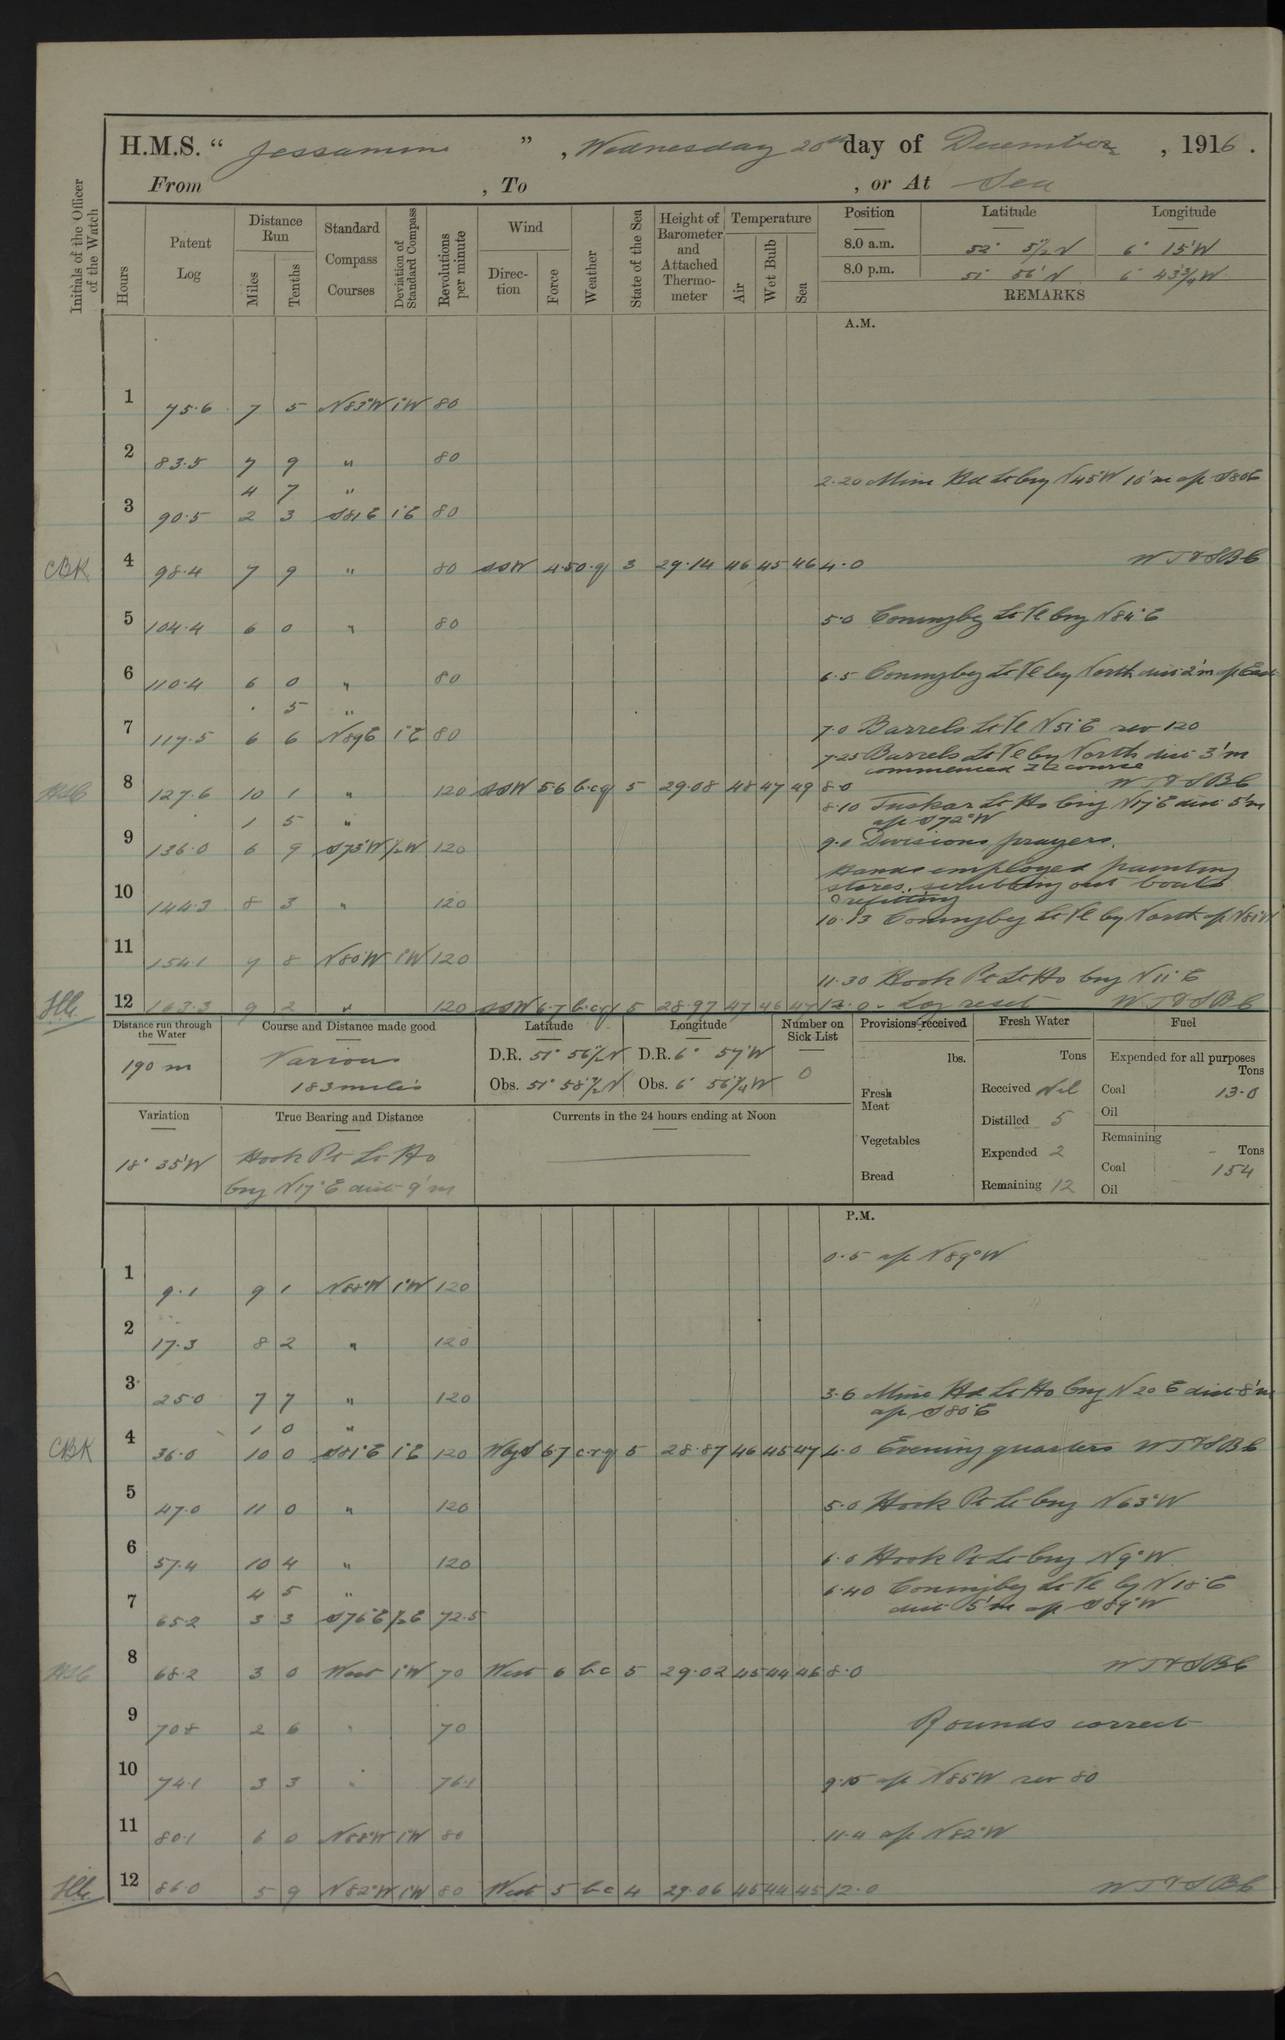 H.M.S. “ Jessamine ” , Wednesday 20th day of December , 1916 .
From , To , or At Sea
Initials of the Officer of the Watch
Hours
Patent Log
Distance Run
Miles
Tenths
Standard Compass Courses
Deviation of Standard Compass
Revolutions per minute
Wind
Direction
Force
Weather
State of the Sea
Height of Barometer and Attached Thermometer
Temperature
Air
Wet Bulb
Sea
Position Latitude Longitude
8.0 a.m. 52° 5½'N 6° 15'W
8.0 p.m. 51° 56'N 6° 43¾'W
REMARKS
A.M.
1 75.6 7 5 N83°W 1°W 80
2 83.5 7 9 " 80
2.20 Mine Hd Lt brg N45W 10'm a/c S80E
4 7 "
3 90.5 2 3 S81E 1°E 80
CBK 4 98.4 7 9 " 80 SSW 4.5 o.q 3 29.14 46 45 46 4.0 WT & SBC
5 104.4 6 0 " 80 5.0 Coningbeg Lt Vl brg N84°E
6 110.4 6 0 " 80 6.5 Coningbeg Lt Vl by North dist 2'm a/c East
. 5 "
7 117.5 6 6 N89E 1°E 80 7.0 Barrels Lt Vl N51°E rev 120
7.25 Barrels Lt Vl by North dist 3'm
commenced ZZ course
8 127.6 10 1 " 120 SSW 5.6 b.c.q 5 29.08 48 47 49 8.0 WT & SBC
8.10 Tuskar Lt Ho brg N17°E dist 5'm
a/c S72°W
1 5 "
9 136.0 6 9 S73°W ½W 120 9.0 Divisions prayers.
Hands employed painting
stores, scrubbing out boats
& refitting
10 144.3 8 3 " 120
10.13 Coningbeg Lt Vl by North a/c N81W
11 154.1 9 8 N80W 1°W 120
11.30 Hook Pt Lt Ho brg N11°E
12 163.3 9 2 " 120 SSW 6.7 b.c.q 5 28.97 47 46 47 12.0 - Log reset WT & SBC
Distance run through the Water
190 m
Course and Distance made good
Various
183 miles
Latitude Longitude
D.R. 51° 56½'N D.R. 6° 57'W
Obs. 51° 58½'N Obs. 6° 56¼'W
Number on Sick List
0
Provisions received
lbs.
Fresh Meat
Vegetables
Bread
Fresh Water
Tons
Received Nil
Distilled 5
Expended 2
Remaining 12
Fuel
Expended for all purposes
Tons
Coal 13.0
Oil
Remaining
Tons
Coal 154
Oil
Variation
18° 35'W
True Bearing and Distance
Hook Pt Lt Ho
brg N17°E dist 9'm
Currents in the 24 hours ending at Noon
P.M.
0.5 a/c N89°W
1 9.1 9 1 N88°W 1°W 120
2 17.3 8 2 " 120
3 25.0 7 7 " 120 3.6 Mine Hd Lt Ho brg N20E dist 8'm
a/c S80°E
1 0 "
CBK 4 36.0 10 0 S81°E 1°E 120 WbyS 6.7 c.r.q 5 28.87 46 45 47 4.0 Evening quarters WT & SBC
5 47.0 11 0 " 120 5.0 Hook Pt Lt brg N63°W
6 57.4 10 4 " 120 6.0 Hook Pt Lt brg N9°W
4 5 " 6.40 Coningbeg Lt Vl by N18°E
dist 5'm a/c S89°W
7 65.2 3 3 S76°E ½E 72.5
8 68.2 3 0 West 1°W 70 West 6 b.c 5 29.02 45 44 46 8.0 WT & SBC
9 70.8 2 6 " 70 Rounds correct
10 74.1 3 3 " 76.1 9.15 a/c N85W rev 80
11 80.1 6 0 N88°W 1°W 80 11.4 a/c N82°W
12 86.0 5 9 N82°W 1°W 80 West 5 b.c 4 29.06 45 44 45 12.0 WT & SBC